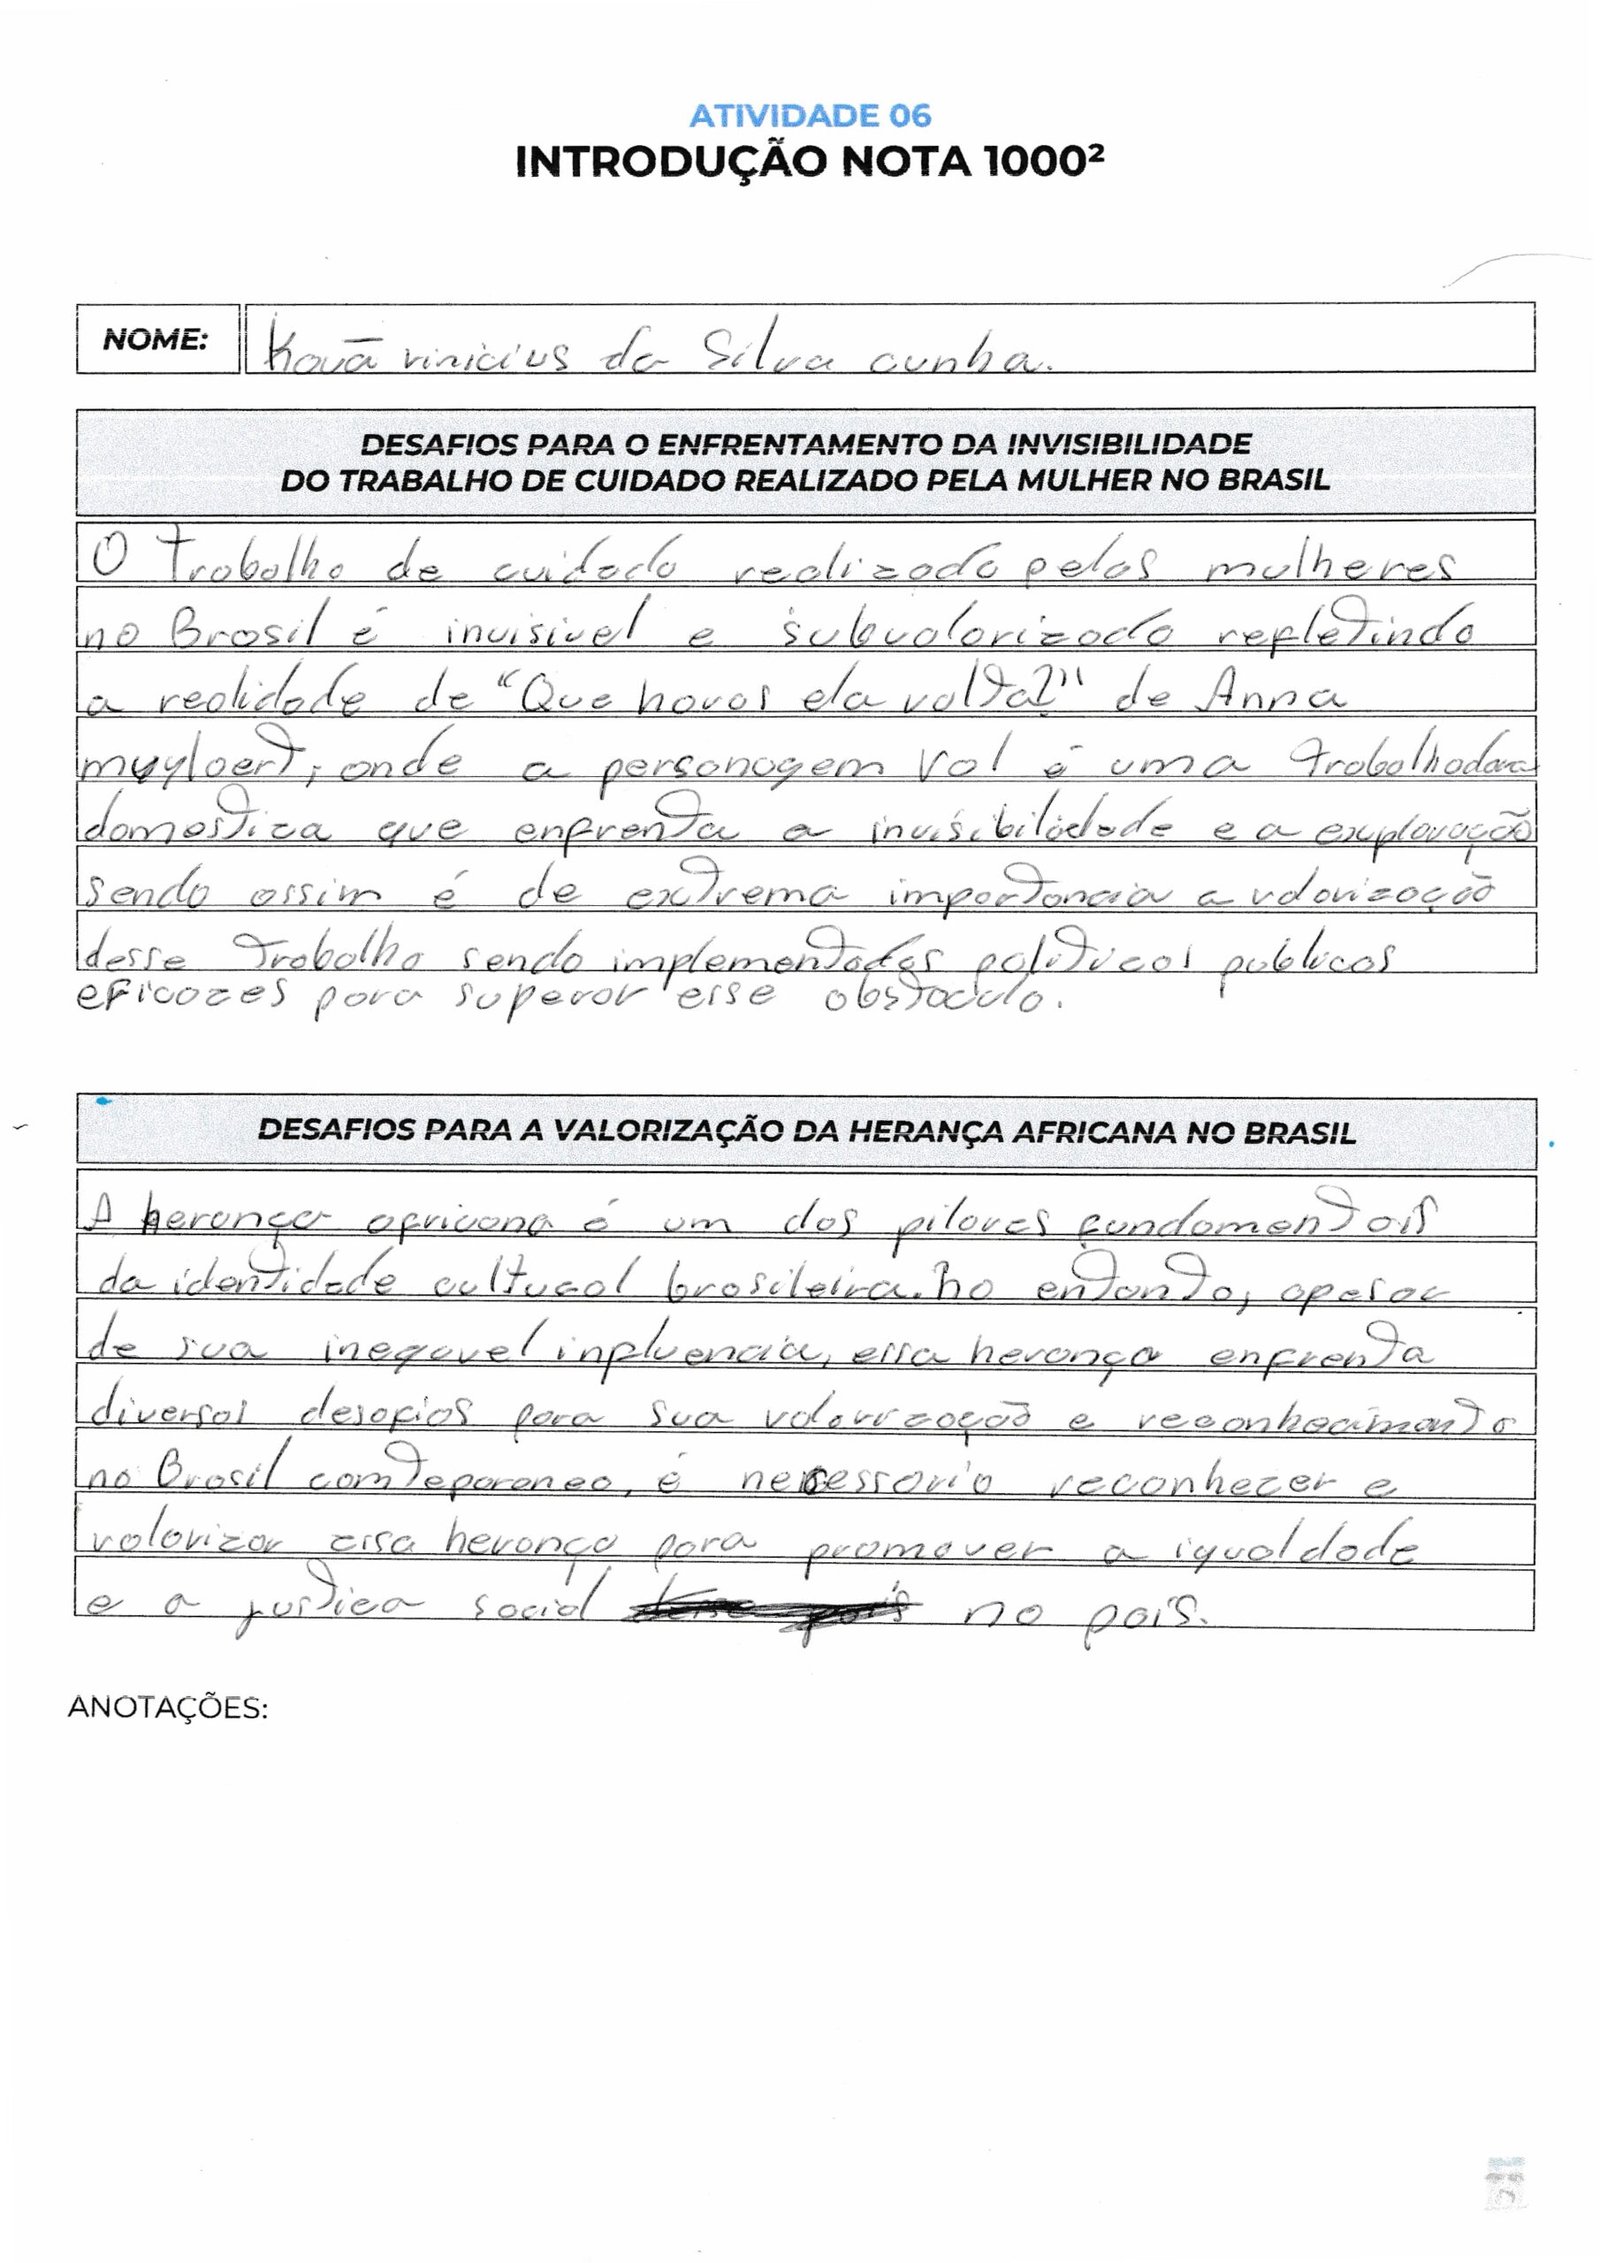 ATIVIDADE 06
INTRODUÇÃO NOTA 1000²
NOME: Kauã vinicius da Silva cunha.
DESAFIOS PARA O ENFRENTAMENTO DA INVISIBILIDADE
DO TRABALHO DE CUIDADO REALIZADO PELA MULHER NO BRASIL
O Trabalho de cuidado realizado pelas mulheres
no Brasil é invisivel e subvalorizado refletindo
a realidade de "Que horas ela volta?" de Anna
muylaert, onde a personagem Val é uma trabalhadora
domestica que enfrenta a invisibilidade e a exploração
sendo assim é de extrema importancia a valorização
desse trabalho sendo implementadas politicas públicas
eficazes para superar esse obstaculo.
DESAFIOS PARA A VALORIZAÇÃO DA HERANÇA AFRICANA NO BRASIL
A herança africana é um dos pilares fundamentais
da identidade cultural brasileira. no entanto, apesar
de sua inegavel influencia, essa herança enfrenta
diversos desafios para sua valorização e reconhecimento
no Brasil comteporaneo, é necessario reconhecer e
valorizar essa herança para promover a igualdade
e a justica social no país.
ANOTAÇÕES: